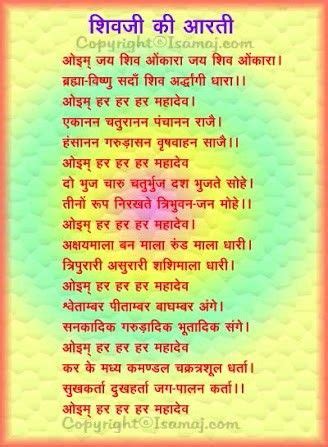 शिवजी की आरती
Copyright©Isamaj.com
ओइम् जय शिव ओंकारा जय शिव ओंकारा।
ब्रह्मा-विष्णु सदाँ शिव अर्द्धागी धारा।।
ओइम् हर हर हर महादेव।
एकानन चतुरानन पंचानन राजै।
हंसानन गरुड़ासन वृषवाहन साजै।।
ओइम् हर हर हर महादेव
दो भुज चारु चतुर्भुज दश भुजते सोहे।
तीनों रूप निरखते त्रिभुवन-जन मोहे।।
ओइम् हर हर हर महादेव।
अक्षयमाला बन माला रुंड माला धारी।
त्रिपुरारी असुरारी शशिमाला धारी।
ओइम् हर हर हर महादेव
श्वेताम्बर पीताम्बर बाघम्बर अंगे।
सनकादिक गरुड़ादिक भूतादिक संगे।
ओइम् हर हर हर महादेव
कर के मध्य कमण्डल चक्रत्रशूल धर्ता।
सुखकर्ता दुखहर्ता जग-पालन कर्ता।।
ओइम् हर हर हर महादेव
Copyright©Isamaj.com